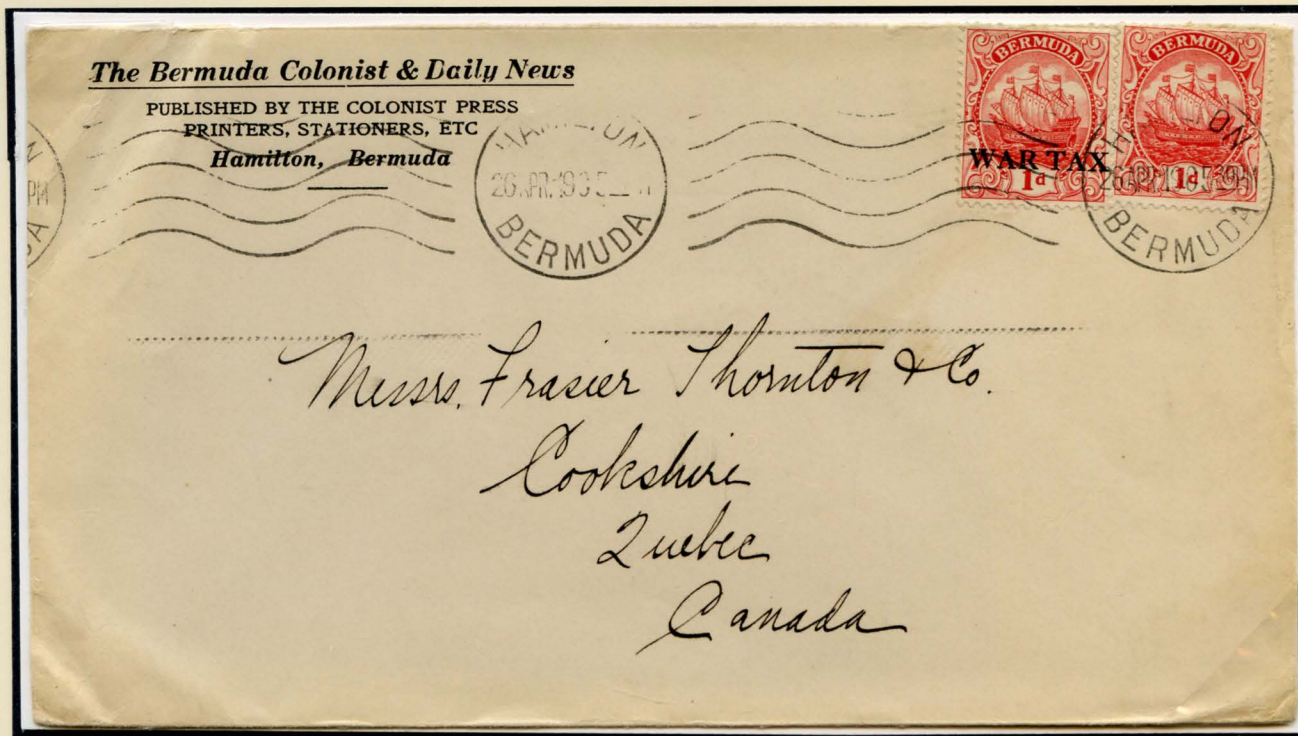 The Bermuda Colonist & Daily News
PUBLISHED BY THE COLONIST PRESS
PRINTERS, STATIONERS, ETC
Hamilton, Bermuda
HAMILTON
BERMUDA
BERMUDA
WAR TAX
1d
BERMUDA
1d
BERMUDA
Messrs. Frasier Thornton & Co.
Cookshire
Quebec
Canada